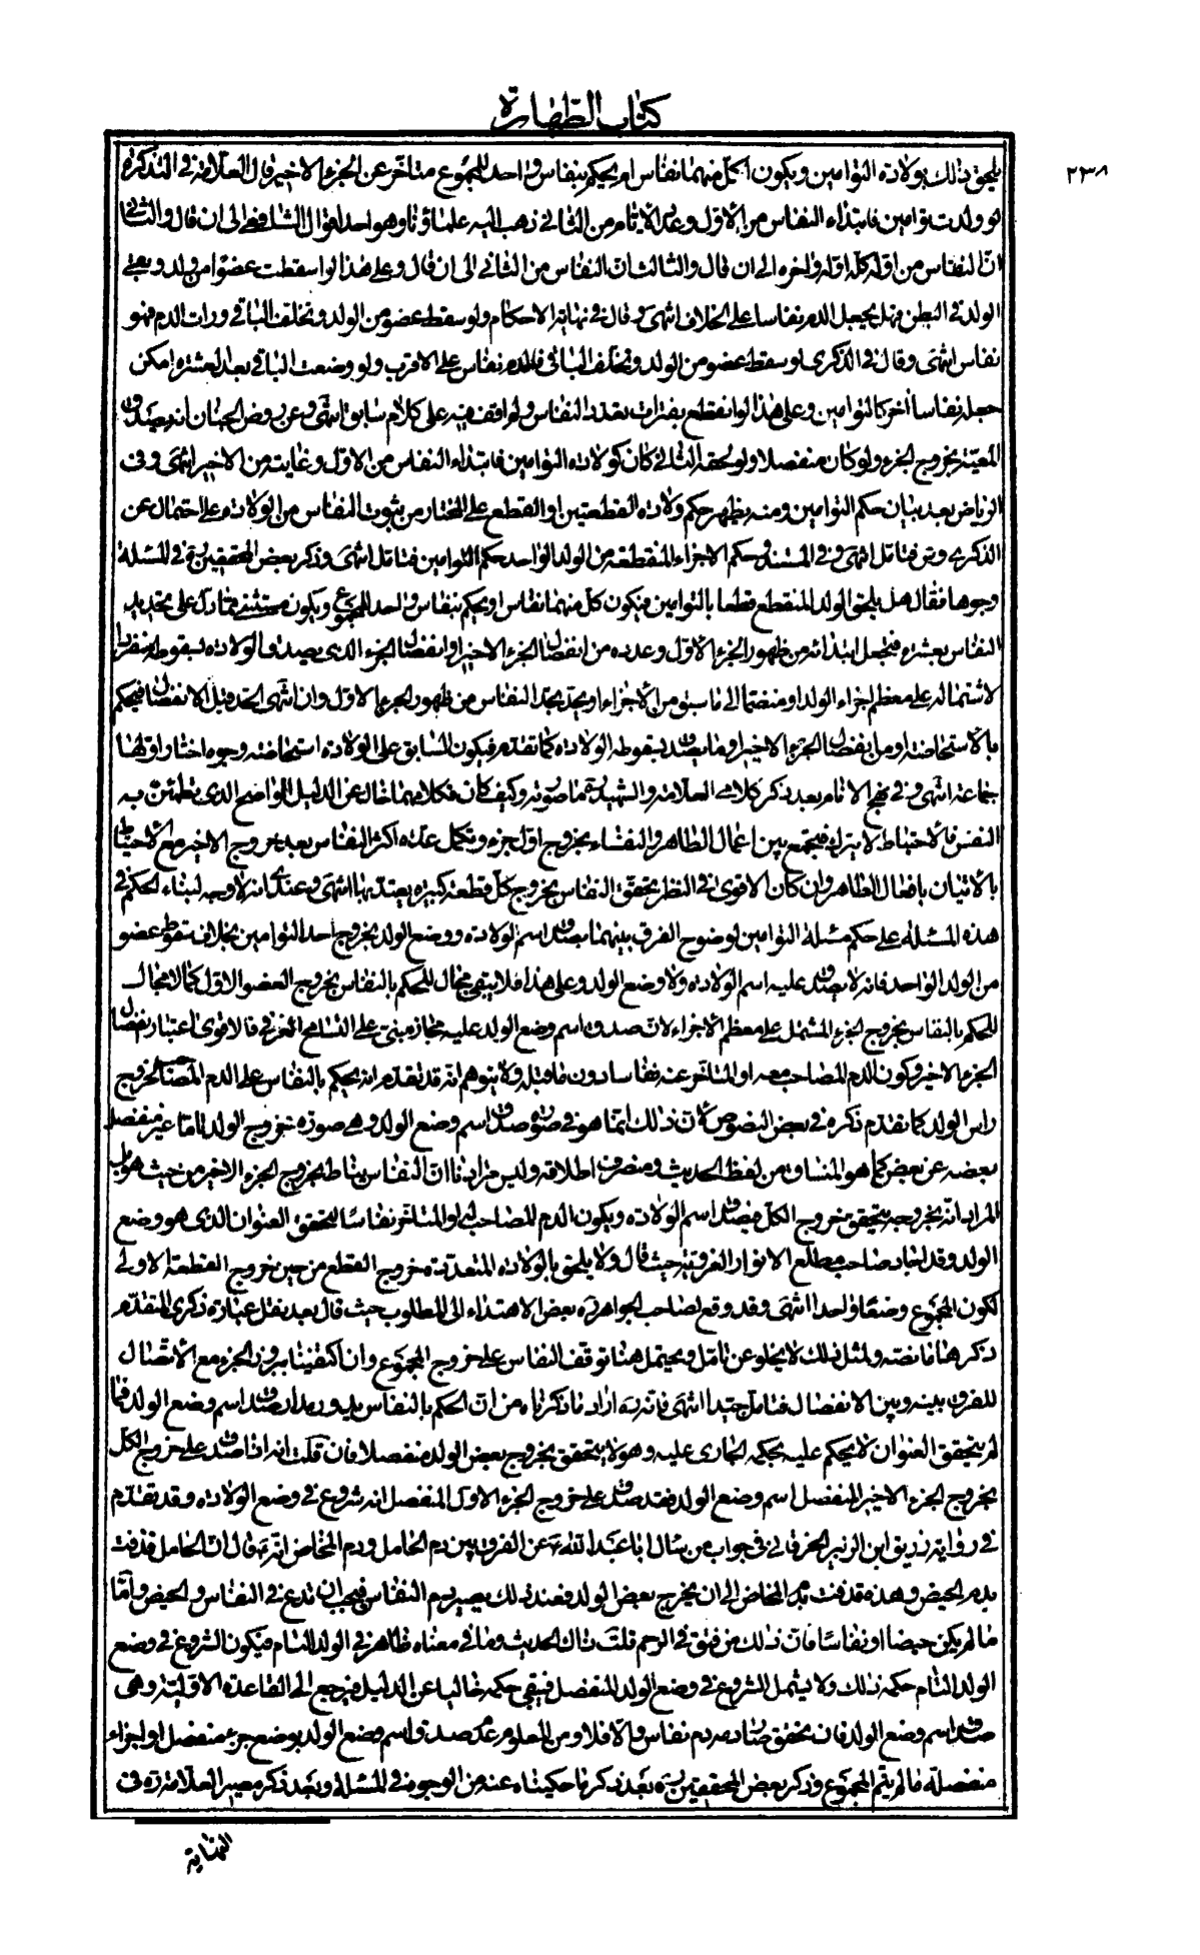 كتاب الطهارة
٢٣٨
يلحق ذلك بولادة التوأمين ويكون لكل منهما نفاس ام يحكم بنفاس واحد للمجموع متأخر عن الجزء الاخير قال العلامة في التذكرة
لو ولدت توامين فابتداء النفاس من الاوّل وعدد الايام من الثاني ذهب اليه علماؤنا وهو احد اقوال الشافعي الى ان قال والثاني
انّ النفاس من اوله كله اوله واخره الى ان قال والثالث ان النفاس من الثاني الى ان قال وعلى هذا لو اسقطت عضوا من ولد وبقى
الولد في البطن فهل يجعل الدم نفاسا على الخلاف انتهى وقال في نهاية الاحكام ولو سقط عضو من الولد وتخلف الباقي ورات الدم فهو
نفاس انتهى وقال في الذكرى لو سقط عضو من الولد وتخلف الباقي فالدم نفاس على الاقرب ولو وضعت الباقي بعد العشرة امكن
جعله نفاسا اخر كالتوامين وعلى هذا لو انقطع بفترات تعدد النفاس ولم اقف فيه على كلام سابق انتهى وعن روض الجنان انه يصدق
المعية بخروج الجزء ولو كان منفصلا ولو لحقه الثاني كان كولادة التوامين فابتداء النفاس من الاوّل وغايته من الاخير انتهى وفى
الرياض بعد بيان حكم التوامين ومنه يظهر حكم ولادة القطعتين او القطع على المختار من ثبوت النفاس من الولادة على احتمال عن
الذكرى وض فتامل انتهى وفي المستند وحكم الاجزاء المنقطعة من الولد الواحد حكم التوامين فتامل انتهى وذكر بعض المحققين ره في المسئلة
وجوها فقال هل يلحق الولد المنقطع قطعا بالتوامين فيكون كل منهما نفاس او يحكم بنفاس واحد للمجموع ويكون مستثنى مما دل على تحديد
النفاس بعشرة فنجعل ابتدائه من ظهور الجزء الاوّل وعدده من انفصال الجزء الاخير او انفصال الجزء الذى يصدق الولادة بسقوطه منفردا
لاشتماله على معظم اجزاء الولد او منضما الى ما سبق من الاجزاء او يحد بحد النفاس من ظهور الجزء الاوّل وان انتهى الحد قبل الانفصال فيحكم
بالاستحاضة او من انفصال الجزء الاخير او ما يصدق بسقوطه الولادة كما تقدم فيكون السابق على الولادة استحاضة وجوه اختار اولها
جماعة انتهى وفي نهج الانام بعد ذكر كلامى العلامة والشهيد ره ما صورته وكيف كان فكلامهما خال عن الدليل الواضح الذى تطمئن به
النفس فالاحتياط لا يترك فيجمع بين اعمال الطاهر والنفساء بخروج اول جزء وتكمل عدة اكثر النفاس بعد خروج الاخير مع الاحتياط
بالاتيان بافعال الطاهر وان كان الاقوى في النظر تحقق النفاس بخروج كل قطعة كبيرة يعتد بها انتهى وعندى انه لا وجه لبناء الحكم في
هذه المسئلة على حكم مسئلة التوامين لوضوح الفرق بينهما بصدق اسم الولادة ووضع الولد بخروج احد التوامين بخلاف سقوط عضو
من الولد الواحد فانه لا يصدق عليه اسم الولادة ولا وضع الولد وعلى هذا فلا يبقى مجال للحكم بالنفاس بخروج العضو الاوّل كما لا مجال
للحكم بالنفاس بخروج الجزء المشتمل على معظم الاجزاء لان صدق اسم وضع الولد عليه مجاز مبنى على التسامح العرفي فالاقوى اعتبار انفصال
الجزء الاخير وكون الدم المصاحب معه او المتاخر عنه نفاسا دون ما قبله ولا يتوهم انه قد تقدم انه يحكم بالنفاس على الدم المصاحب لخروج
راس الولد كما تقدم ذكره في بعض النصوص لان ذلك انما هو في صورة صدق اسم وضع الولد وهى صورة خروج الولد تاما غير منفصل
بعضه عن بعض كما هو المنساق من لفظ الحديث ومنصرف اطلاقه وليس مرادنا ان النفاس يناط بخروج الجزء الاخير من حيث هو بل
المراد انه بخروجه يتحقق خروج الكل فيصدق اسم الولادة ويكون الدم المصاحب له او المتاخر نفاسا لتحقق العنوان الذى هو وضع
الولد وقد اجاد صاحب مطلع الانوار الغروية حيث قال ولا يلحق بالولادة المتعددة خروج القطع من حين خروج القطعة الاولى
لكون المجموع وضعا واحدا انتهى وقد وقع لصاحب الجواهر ره بعض الاهتداء الى المطلوب حيث قال بعد نقل عبارة ذكرى المتقدم
ذكرها ما نصه ولمثل ذلك لا يخلو عن تامل ويحتمل هنا توقف النفاس على خروج المجموع وان اكتفينا ببروز الجزء مع الاتصال
للفرق بينه وبين الانفصال فتامل جيدا انتهى فانه ره اراد ما ذكرناه من ان الحكم بالنفاس يدور مدار صدق اسم وضع الولد فما
لم يتحقق العنوان لا يحكم عليه بحكمه الجارى عليه وهو لا يتحقق بخروج بعض الولد منفصلا فان قلت انه اذا صدق على خروج الكل
بخروج الجزء الاخير المنفصل اسم وضع الولد فقد صدق على خروج الجزء الاوّل المنفصل انه شروع في وضع الولادة وقد تقدم
في رواية زريق ابن الزبير الخرقانى في جواب من سئل ابا عبد الله ع عن الفرق بين دم الحامل ودم المخاض انه ع قال ان الحامل قذفت
بدم الحيض وهذه قذفت بدم المخاض الى ان يخرج بعض الولد فعند ذلك يصير دم النفاس فيجب ان تدع في النفاس والحيض وامّا
ما لم يكن حيضا او نفاسا فان ذلك من فتق في الرحم قلت ذلك الحديث وما في معناه ظاهر في الولد التام فيكون الشروع في وضع
الولد التام حكمه ذلك ولا يشمل الشروع في وضع الولد المنفصل فيبقى حكمه خاليا عن الدليل فيرجع الى القاعدة الاولية وهى
صدق اسم وضع الولد فان تحقق صار دمه دم نفاس والا فلا ومن المعلوم عدم صدق اسم وضع الولد بوضع جزء منفصل او اجزاء
منفصلة ما لم يتم المجموع وذكر بعض المحققين ره بعد ذكر ما حكيناه عنه من الوجوه في المسئلة وبعد ذكر مصير العلامة ره فى
النهاية